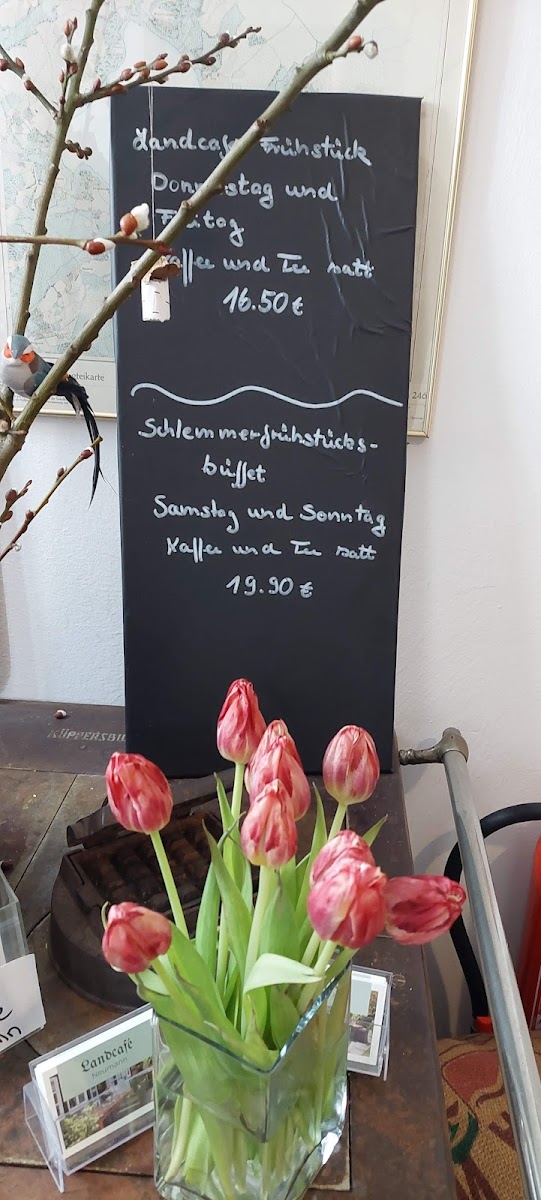 Landcafe Frühstück
Donnerstag und
Freitag
Kaffee und Tee satt
16.50 €
Schlemmerfrühstücks-
büffet
Samstag und Sonntag
Kaffee und Tee satt
19.90 €
KÜPPERSBU
Landcafé
Neumann
246